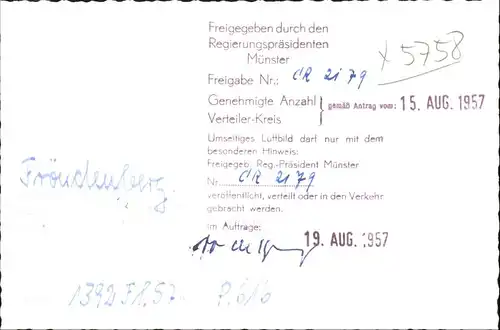 Freigegeben durch den
Regierungspräsidenten
Münster
x 5758
Freigabe Nr.: CR 2179
Genehmigte Anzahl } gemäß Antrag vom: 15. AUG. 1957
Verteiler-Kreis
Umseitiges Luftbild darf nur mit dem
besonderen Hinweis:
Freigegeb. Reg.-Präsident Münster
Nr. CR 2179
veröffentlicht, verteilt oder in den Verkehr
gebracht werden.
Im Auftrage:
19. AUG. 1957
Fröndenberg
1392 F 1,57 P. 616